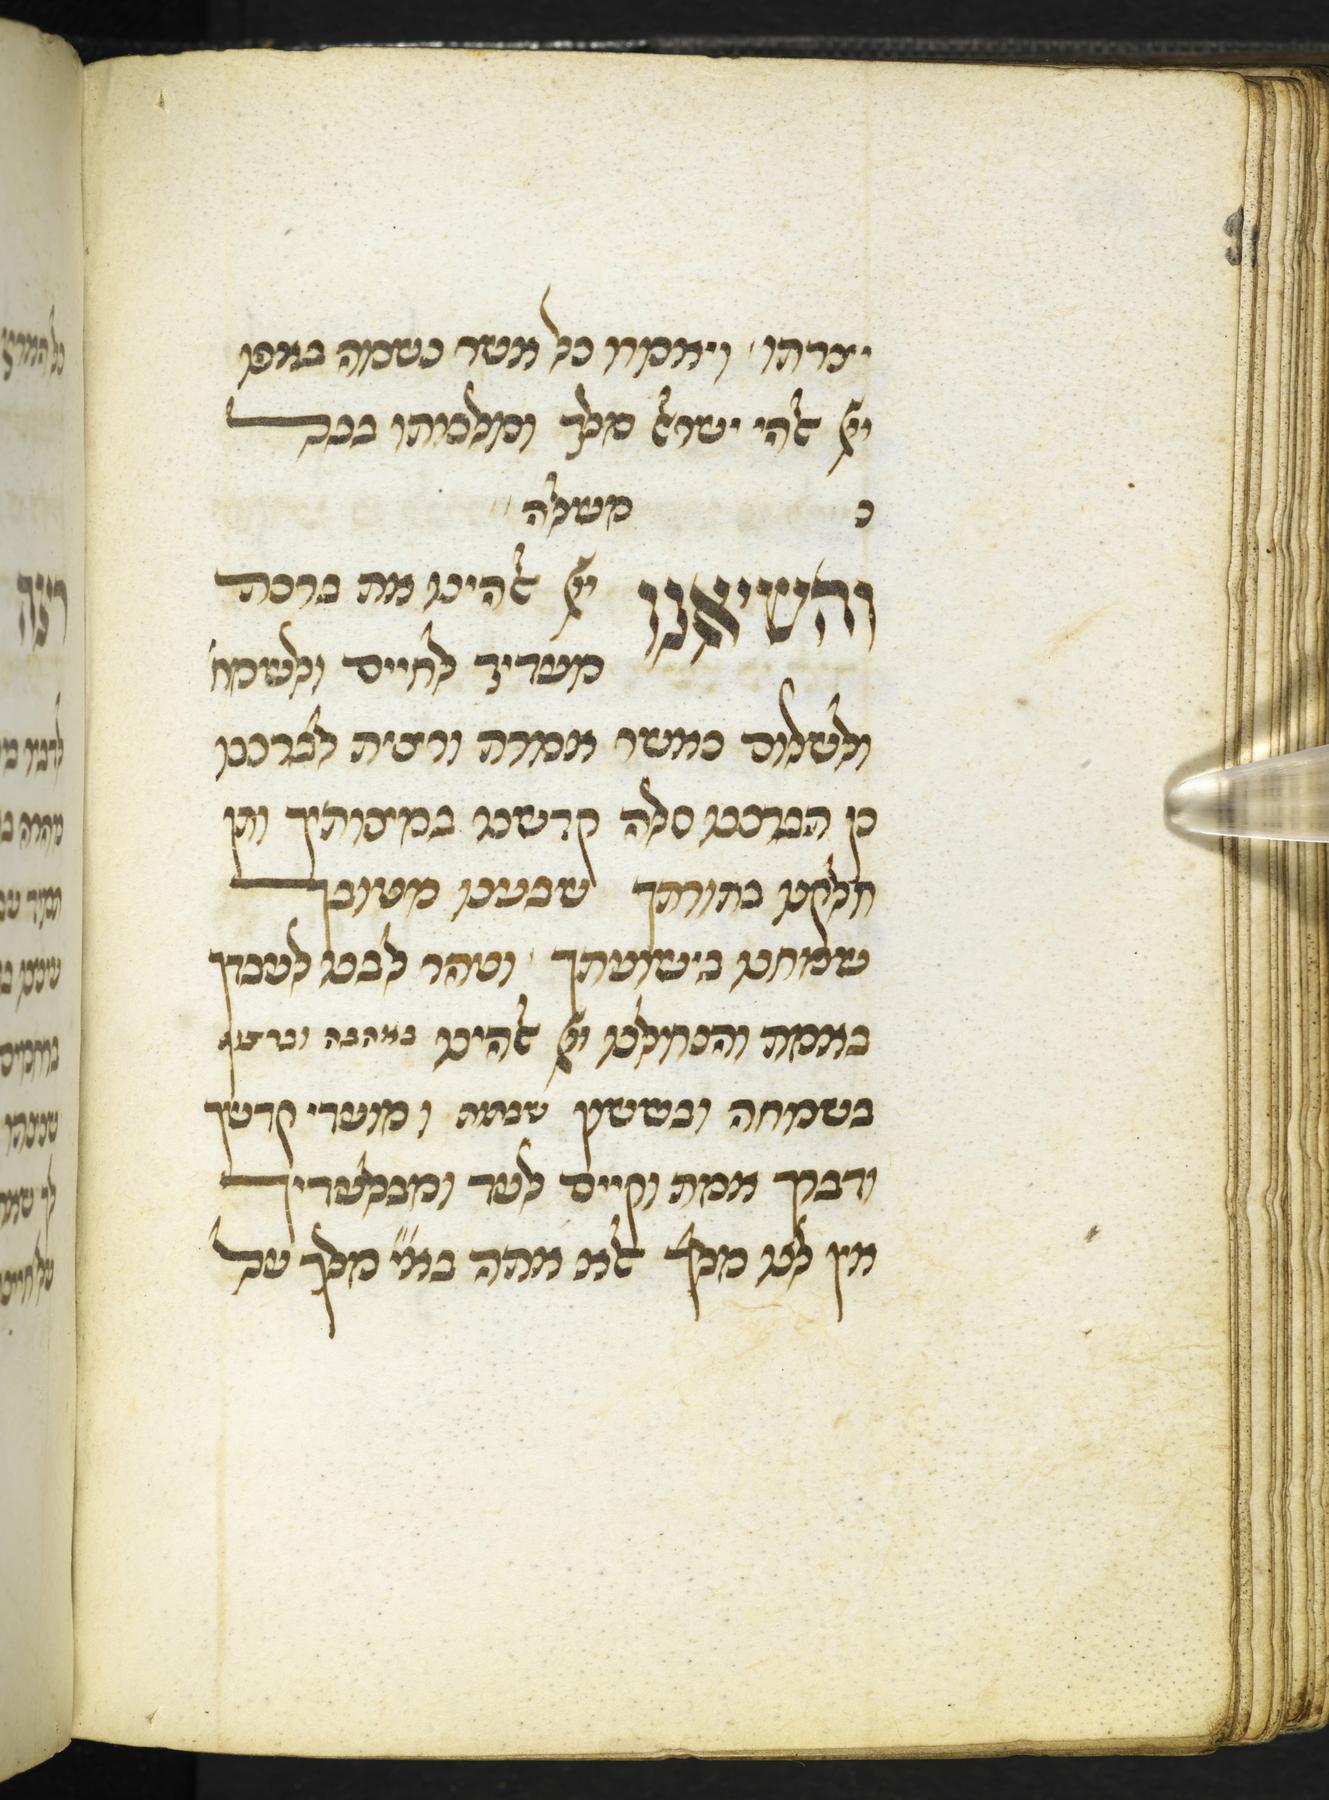 יצרתו ויאמרו כל אשר נשמה באפו
יי אלהי ישראל מלך ומלכותו בכל
כ משלה
והשיאנו יי אלהינו את ברכת
מועדיך לחיים ולשמח
ולשלום כאשר אמרת ורצית לברכנו
כן תברכנו סלה קדשנו במצותיך ותן
חלקנו בתורתך שבענו מטובך
שמחנו בישועתך וטהר לבנו לעבדך
באמת והנחילנו יי אלהינו באהבה וברצון
בשמחה ובששון שבתות ומועדי קדשך
ודברך אמת וקיים לעד ומבלעדיך
אין לנו מלך אלא אתה בא״י מלך על